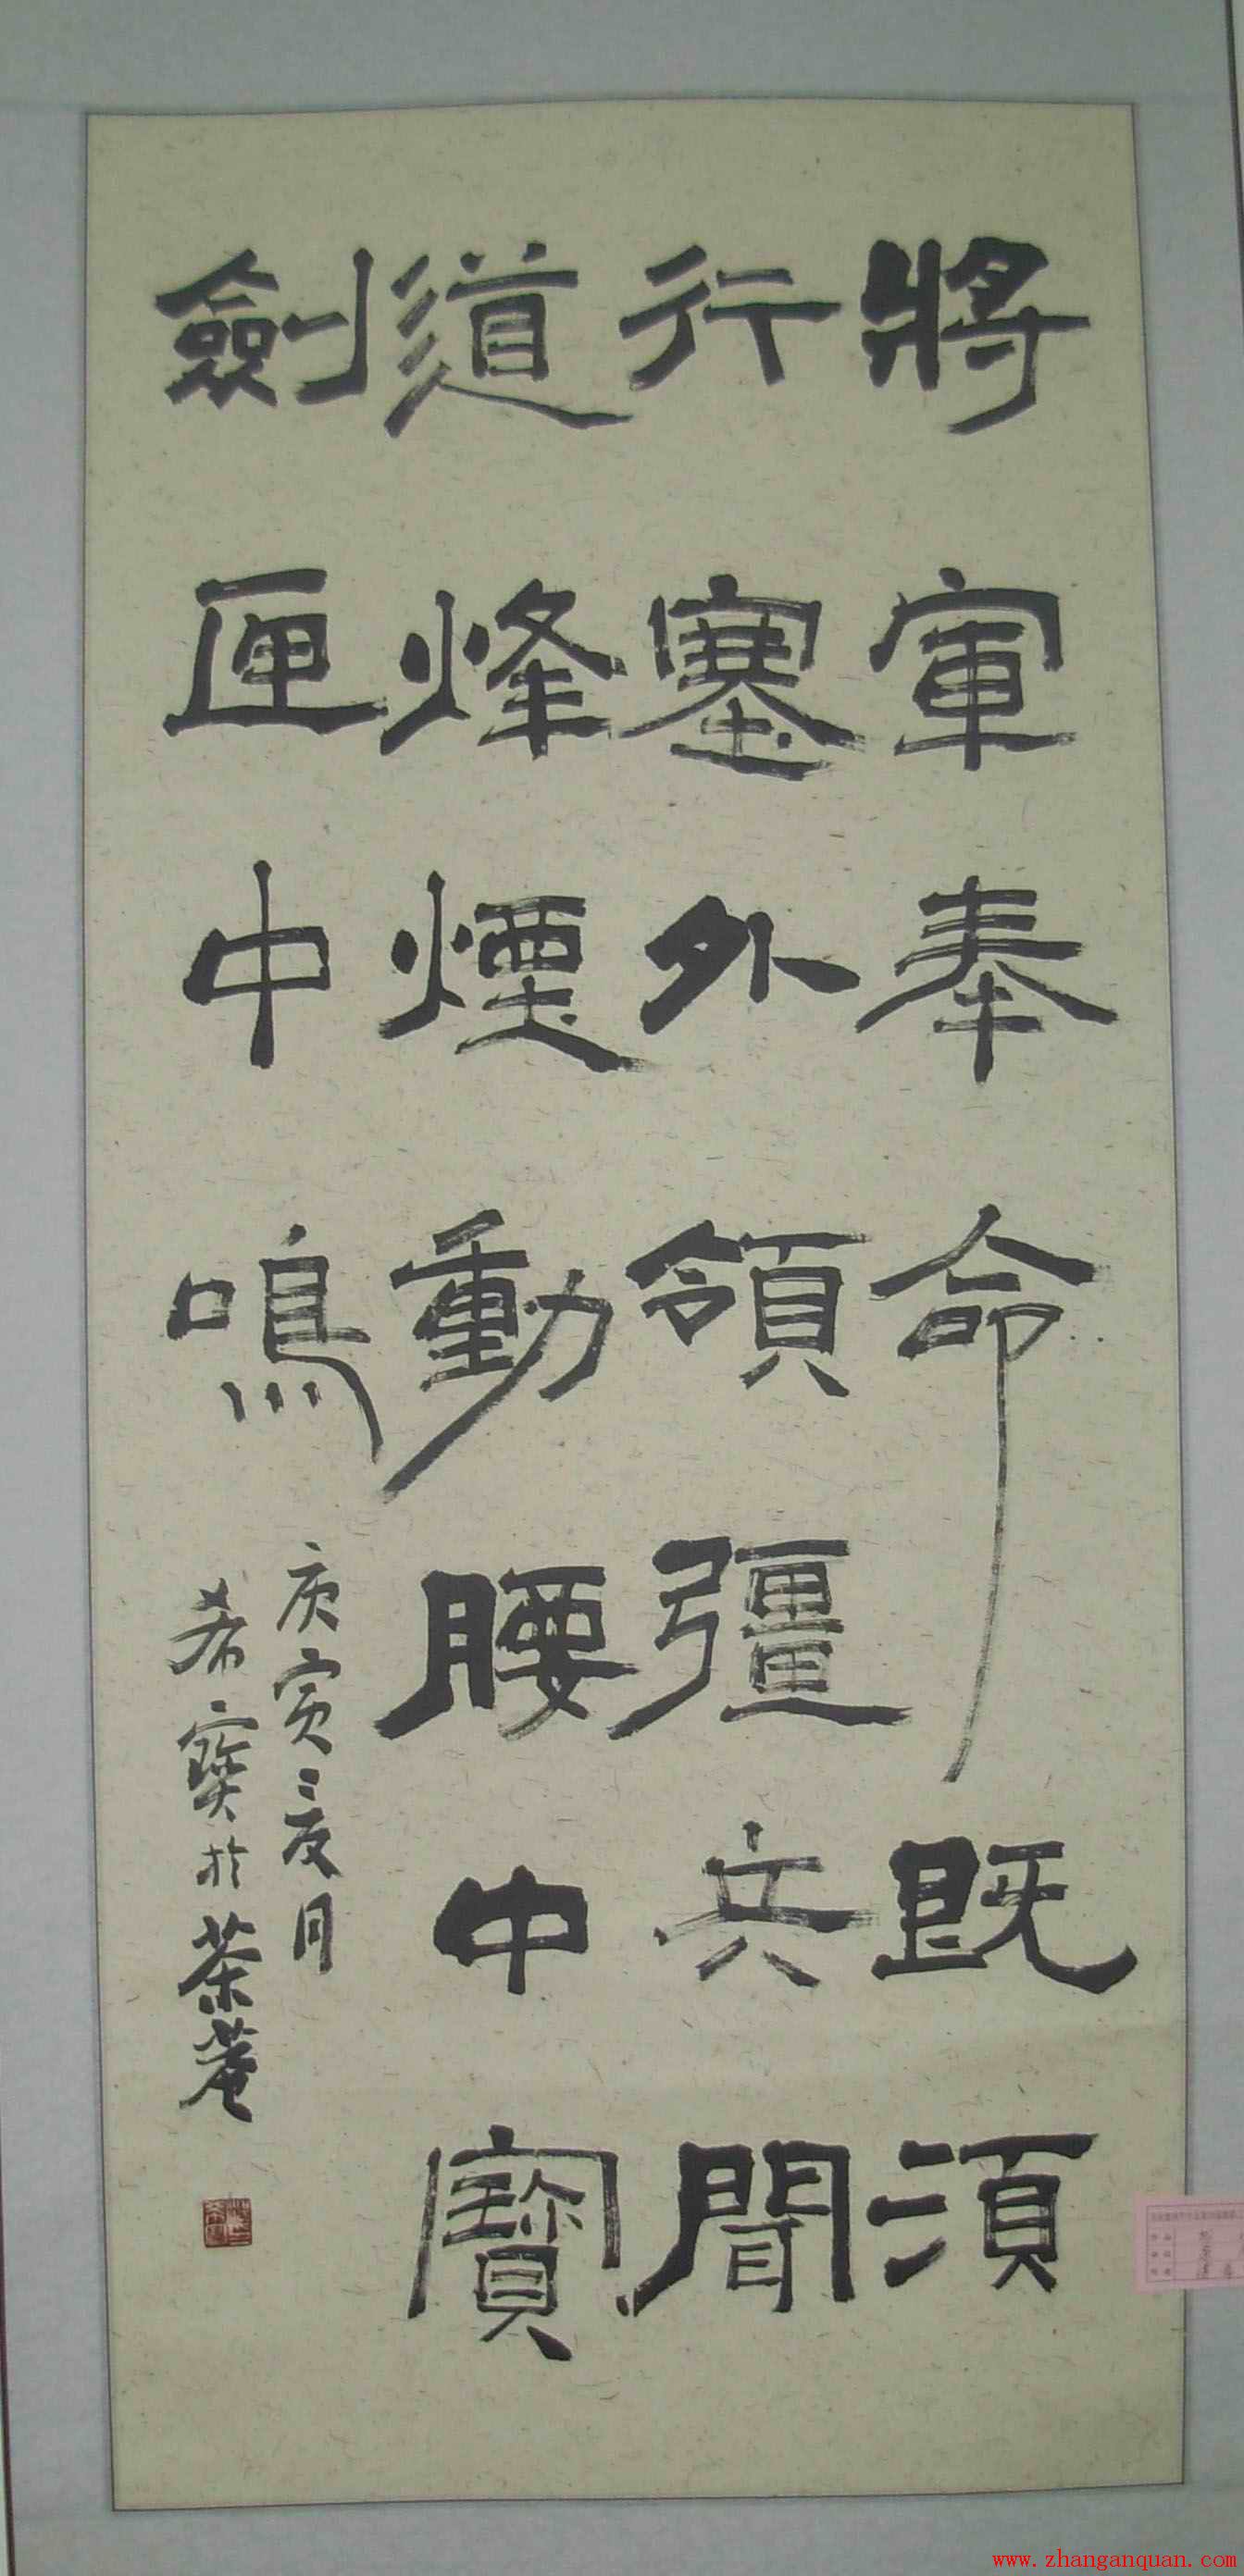 將軍奉命既須
行塞外領彊兵聞
道烽煙動腰中寶
劍匣中鳴
庚寅三月
希寶於茶菴
www.zhanganquan.com